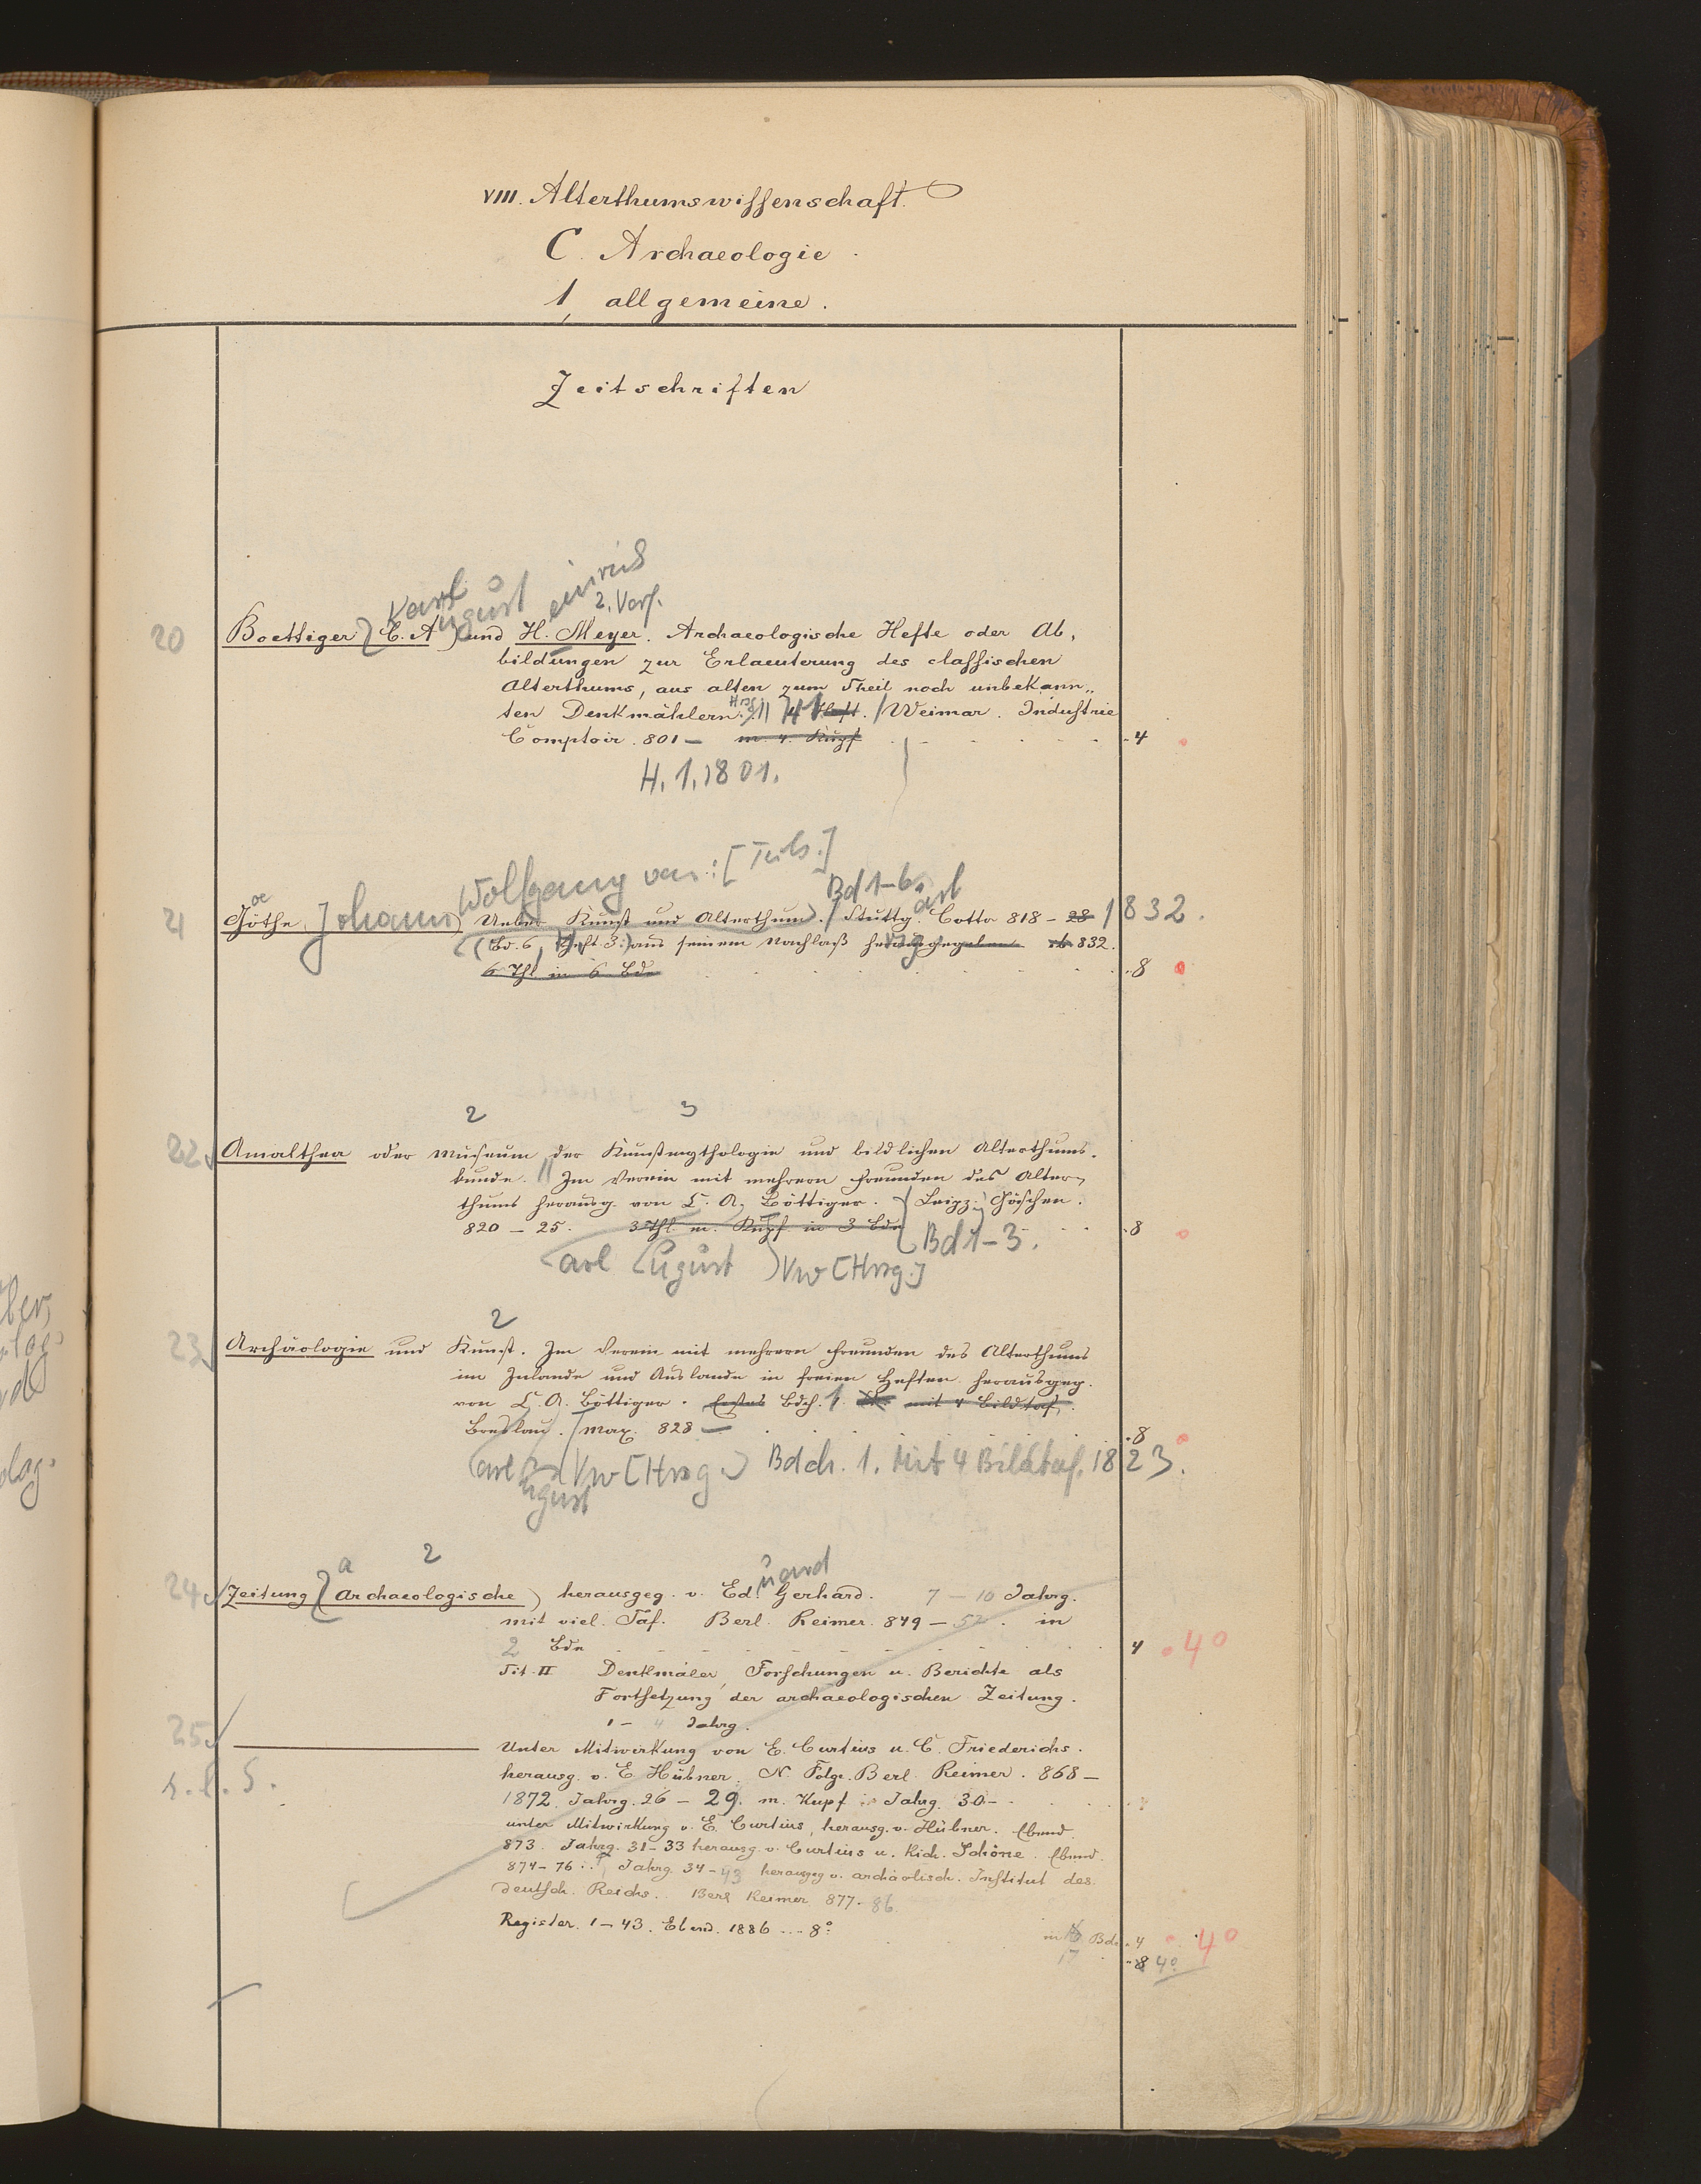 VIII. Alterthumswissenschaft.
C. Archaeologie.
1, allgemeine.
Zeitschriften
Karl ugust einrich
2. Verf.
20 Boettiger, C. A. und H. Meyer. Archaeologische Hefte oder Ab,
bildungen zur Erlaeuterung des classischen
Alterthums, aus alten zum Theil noch unbekann„
ten Denkmählern. Hrsg. Heft. Weimar. Industrie
Comptoir. 801 — m. 4. Kupf 4
H. 1, 1801.
Wolfgang von: Bd 1-6. art
oe
21 Göthe, Johann Ueber Kunst und Alterthum. Stuttg. Cotta 818 - 28 1832.
(Bd. 6, Heft 3: aus seinem Nachlaß herausgegeben 832.
6 Thl. in 6 Bde 8
2 3
22 Amalthea oder Museum der Kunstmythologie und bildlichen Alterthums-
kunde. Im Verein mit mehrern Freunden des Alter,
thums herausg. von C. A. Böttiger. Leipz. Göschen.
820 - 25. 3 Thl. m. Kupf in 3 Bde Bd 1-3. 8
arl ugust Vw [Hrsg.]
2
23 Archäologie und Kunst. Im Verein mit mehrern Freunden des Alterthums
im Inlande und Auslande in freien Heften herausgeg.
von C. A. Böttiger. Erstes Bdch. 1. St. mit 4 Bildtaf.
Breslau. Max. 828 — 8
arl Vw [Hrsg.] Bdch. 1. Mit 4 Bildtaf. 1823.
ugust
a 2 uard
24 Zeitung, Archaeologische herausgeg. v. Ed. Gerhard. 7 - 10 Jahrg.
mit viel. Taf. Berl. Reimer. 849 - 52. in
2 Bde 4 4°
Tit. II Denkmäler, Forschungen u. Berichte als
Fortsetzung der archaeologischen Zeitung.
1 - 4 Jahrg.
25 ——— Unter Mitwirkung von E. Curtius u. C. Friederichs.
herausg. v. E. Hübner. N. Folge. Berl. Reimer. 868 —
s. l. S.
1872. Jahrg. 26 - 29. m. Kupf Jahrg. 30 -
unter Mitwirkung v. E. Curtius, herausg. v. Hübner. Ebend.
873. Jahrg. 31-33 herausg. v. Curtius u. Rich. Schöne. Ebend.
874-76 Jahrg. 34-43 herausgeg v. archäolisch. Institut des
deutsch. Reichs. Berl Reimer 877-86.
Register. 1-43. Ebend. 1886 ... 8°
in Bde 4 4°
17 8 4°